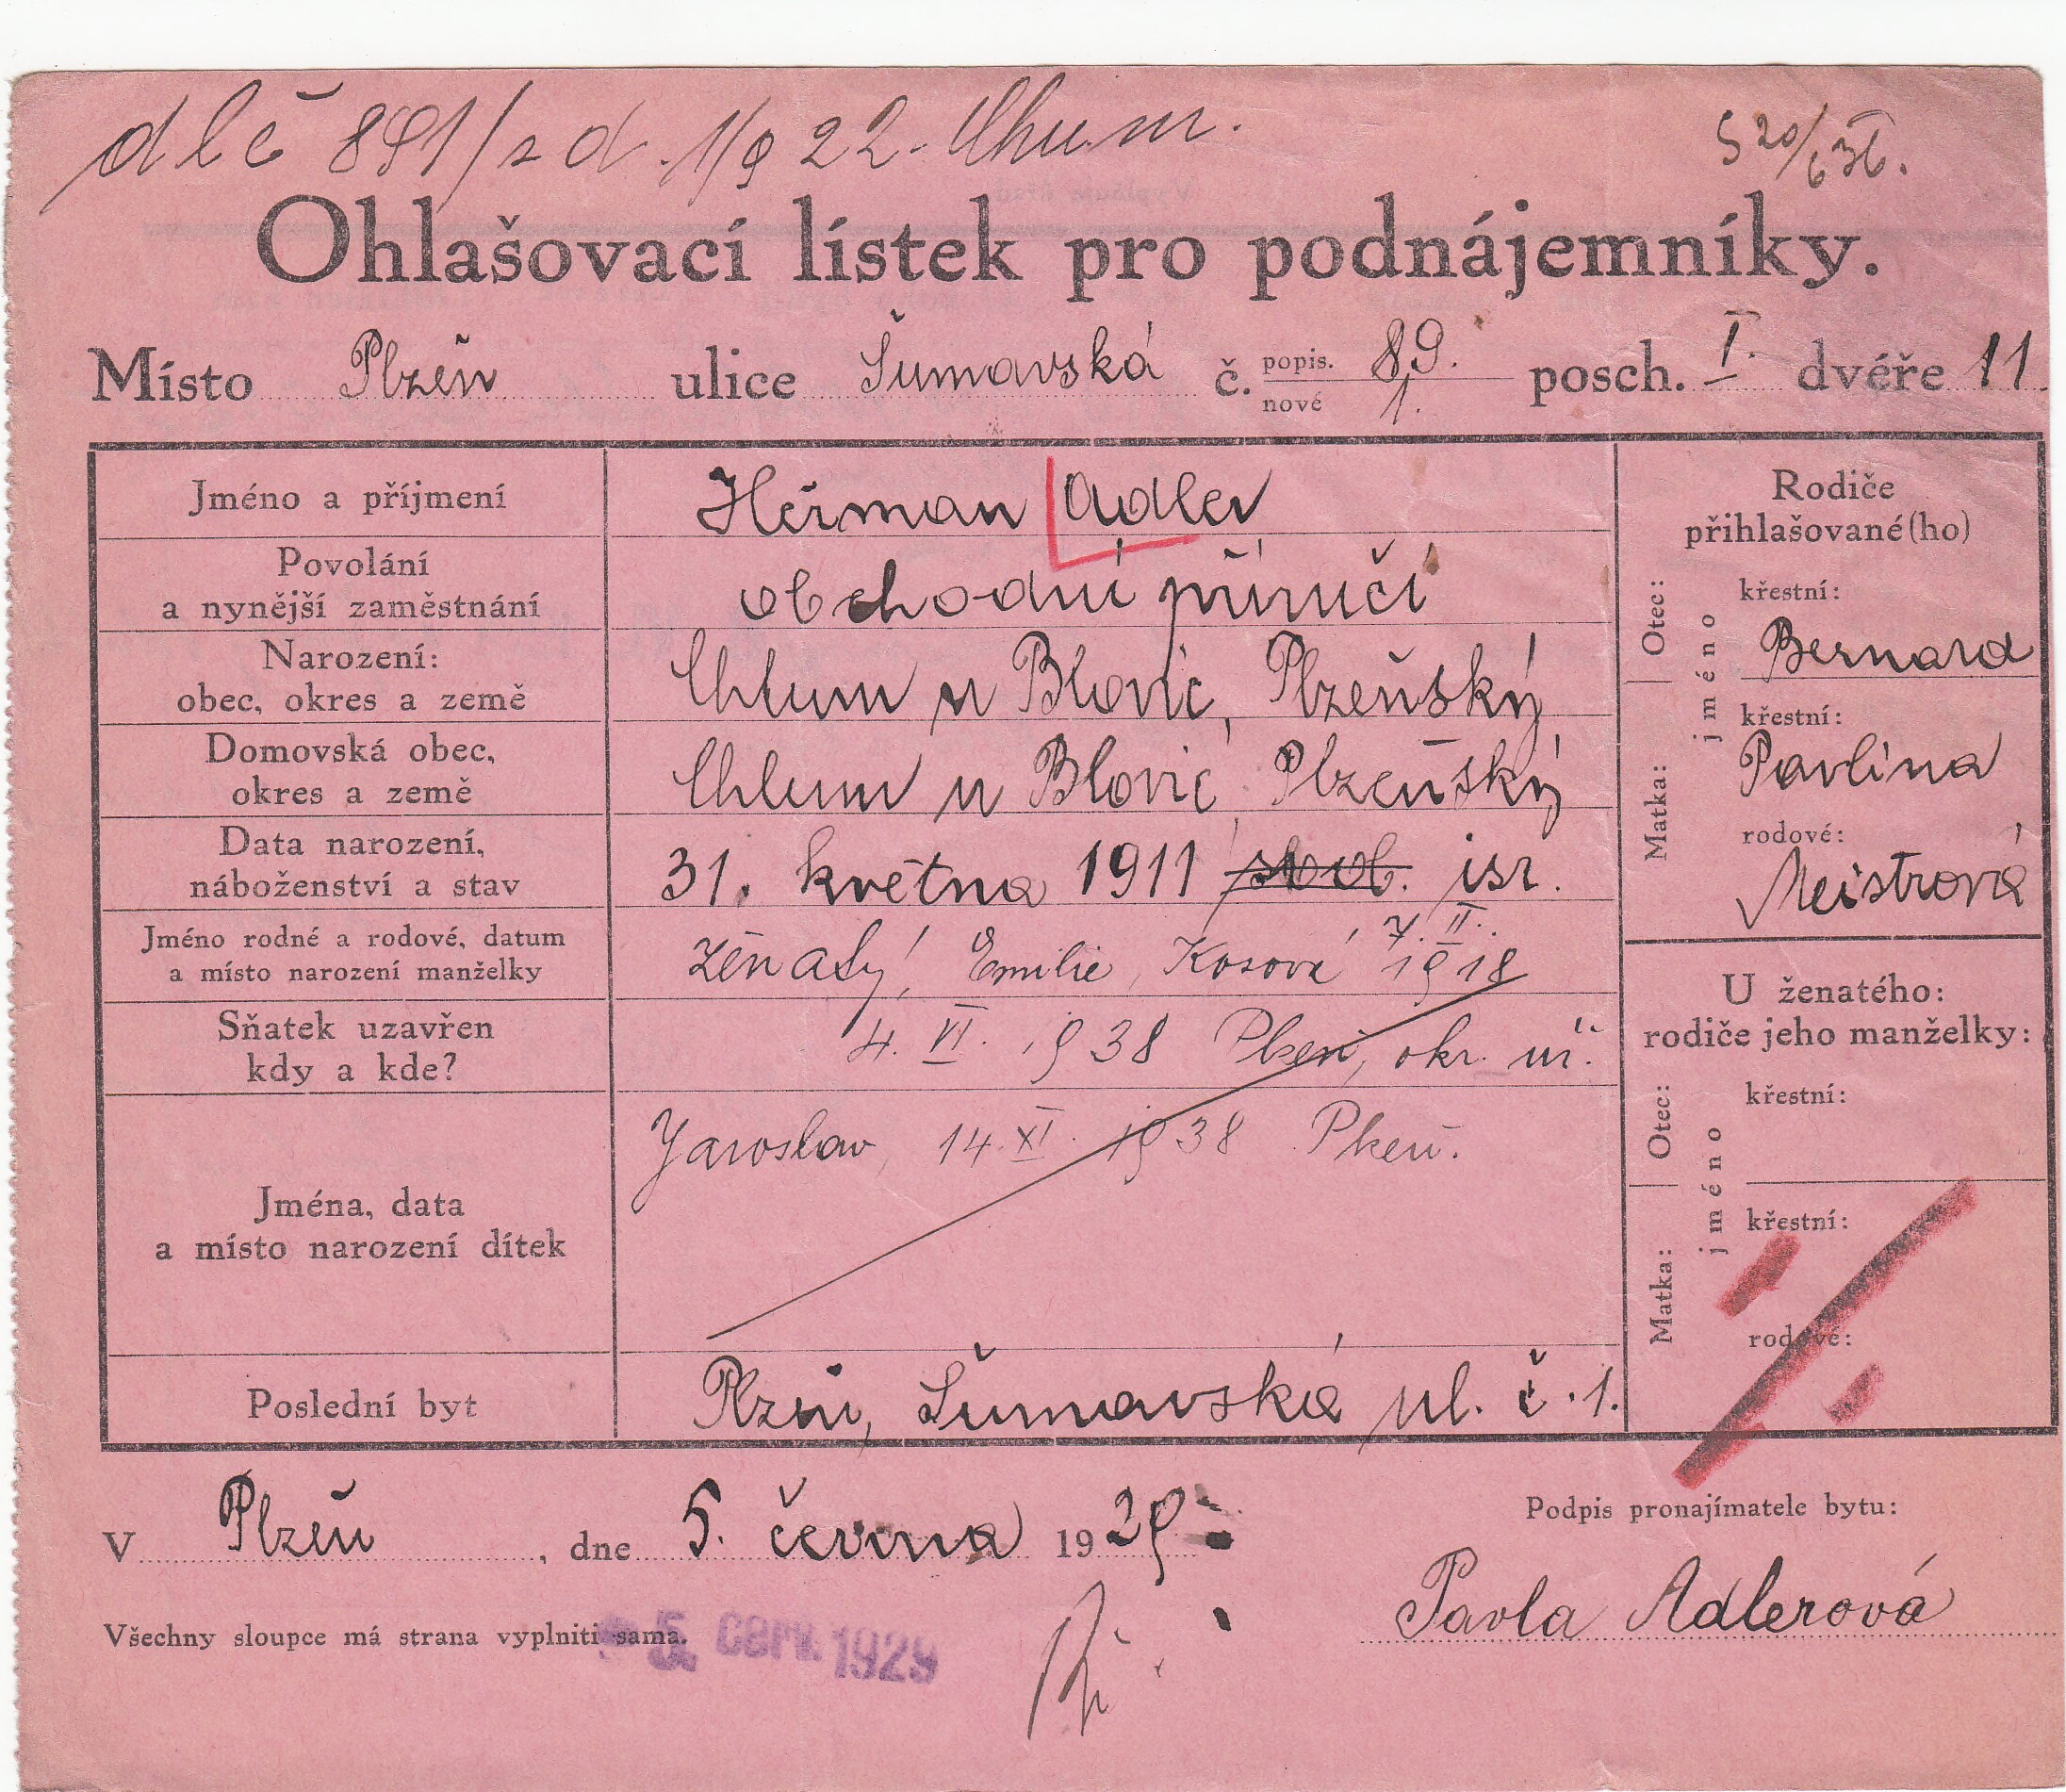 dlč 891/2 d. 1/9 22. Chlum.
Ohlašovací lístek pro podnájemníky.
Místo Plzeň ulice Šumavská č. popis. 89. nové 1. posch. I. dvéře 11.
Jméno a příjmení
Heřman Adler
Povolání
a nynější zaměstnání
obchodní příručí
Narození:
obec, okres a země
Chlum u Blovic, Plzeňský
Domovská obec,
okres a země
Chlum u Blovic Plzeňský
Data narození,
náboženství a stav
31. května 1911 svob. isr.
Jméno rodné a rodové, datum
a místo narození manželky
ženatý, Emilie Kosová 7. II. 1918
Sňatek uzavřen
kdy a kde?
4. VI. 1938 Plzeň, okr. úř.
Jména, data
a místo narození dítek
Jaroslav, 14. XI. 1938 Plzeň.
Poslední byt
Plzeň, Šumavská ul. č. 1.
Rodiče
přihlašované(ho)
Otec:
jméno
křestní:
Bernard
Matka:
křestní:
Pavlína
rodové:
Meistrová
U ženatého:
rodiče jeho manželky:
Otec:
jméno
křestní:
Matka:
křestní:
rodové:
V Plzeň, dne 5. června 1929
Podpis pronajímatele bytu:
Pavla Adlerová
Všechny sloupce má strana vyplniti sama.
5. červ. 1929